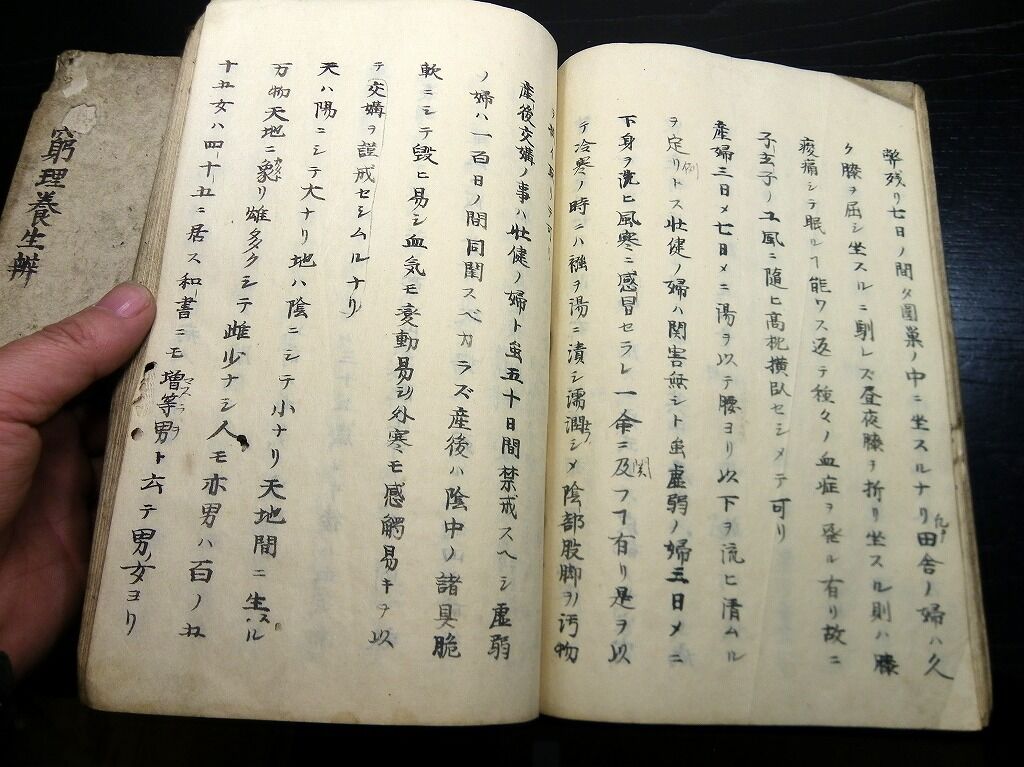 弊残リ七日ノ間夕圊巣ノ中ニ坐スルナリ田舎ノ婦ハ久
ク膝ヲ屈シ坐スルニ馴レズ昼夜膝ヲ折リ坐スル則ハ膝
痠痛シテ眠ルヿ能ワス返テ種々ノ血症ヲ発ル有リ故ニ
子玄子ノ風ニ随ヒ高枕横臥セシメテ可リ
産婦三日メ七日メニ湯ヲ以テ腰ヨリ以下ヲ流ヒ清ムル
ヲ定リトス壮健ノ婦ハ関害無シト虽虚弱ノ婦三日メニ
下身ヲ洗ヒ風寒ニ感冒セラレ一命ニ及フヿ有リ是ヲ以
テ冷寒ノ時ニハ襁ヲ湯ニ漬シ濡潤シメ陰部股脚ヲノ汚物
産後交媾ノ事ハ壮健ノ婦ト虽五十日間禁戒スヘシ虚弱
ノ婦ハ一百日ノ間同閨スベカラズ産後ハ陰中ノ諸具脆
軟ニシテ毀ヒ易シ血気モ変動易シ外寒モ感觸易キヲ以
テ交媾ヲ謹戒セシムルナリ
天ハ陽ニシテ大ナリ地ハ陰ニシテ小ナリ天地間ニ生スル
万物天地ニ象リ雄多クシテ雌少ナシ人モ亦男ハ百ノ五
十五女ハ四十五ニ居ス和書ニモ増等男ト云テ男女ヨリ
窮理養生辨